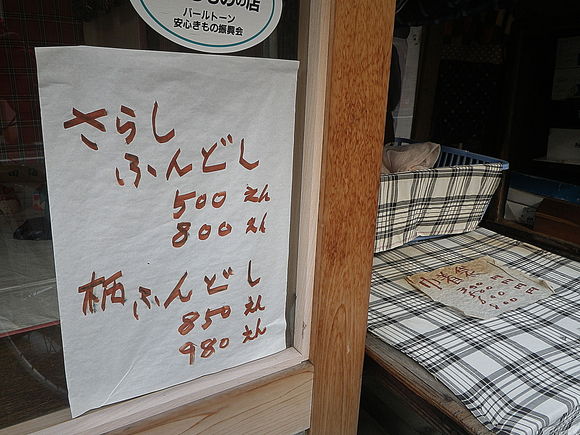 パールトーン
安心きもの振興会
さらし
ふんどし
500 えん
800 えん
柄ふんどし
850 えん
980 えん